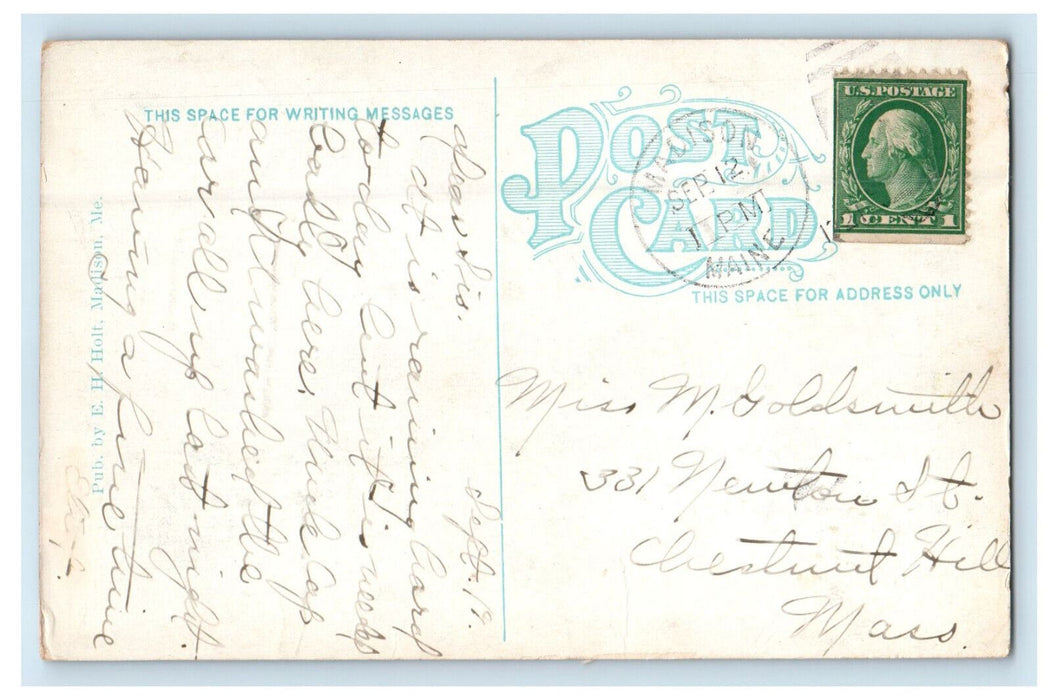 THIS SPACE FOR WRITING MESSAGES
Pub. by E. H. Holt, Madison, Me.
POST CARD
THIS SPACE FOR ADDRESS ONLY
U.S. POSTAGE
1 CENT 1
MADISON
SEP. 12
1 PM
MAINE
Sept. 12.
Dear Sis.
It is raining hard
to-day but it is needed
badly here. Uncle Cap
and the
car all up last night.
Having a fine time
Miss M. Goldsmith
331 Newton St.
Chestnut Hill
Mass.